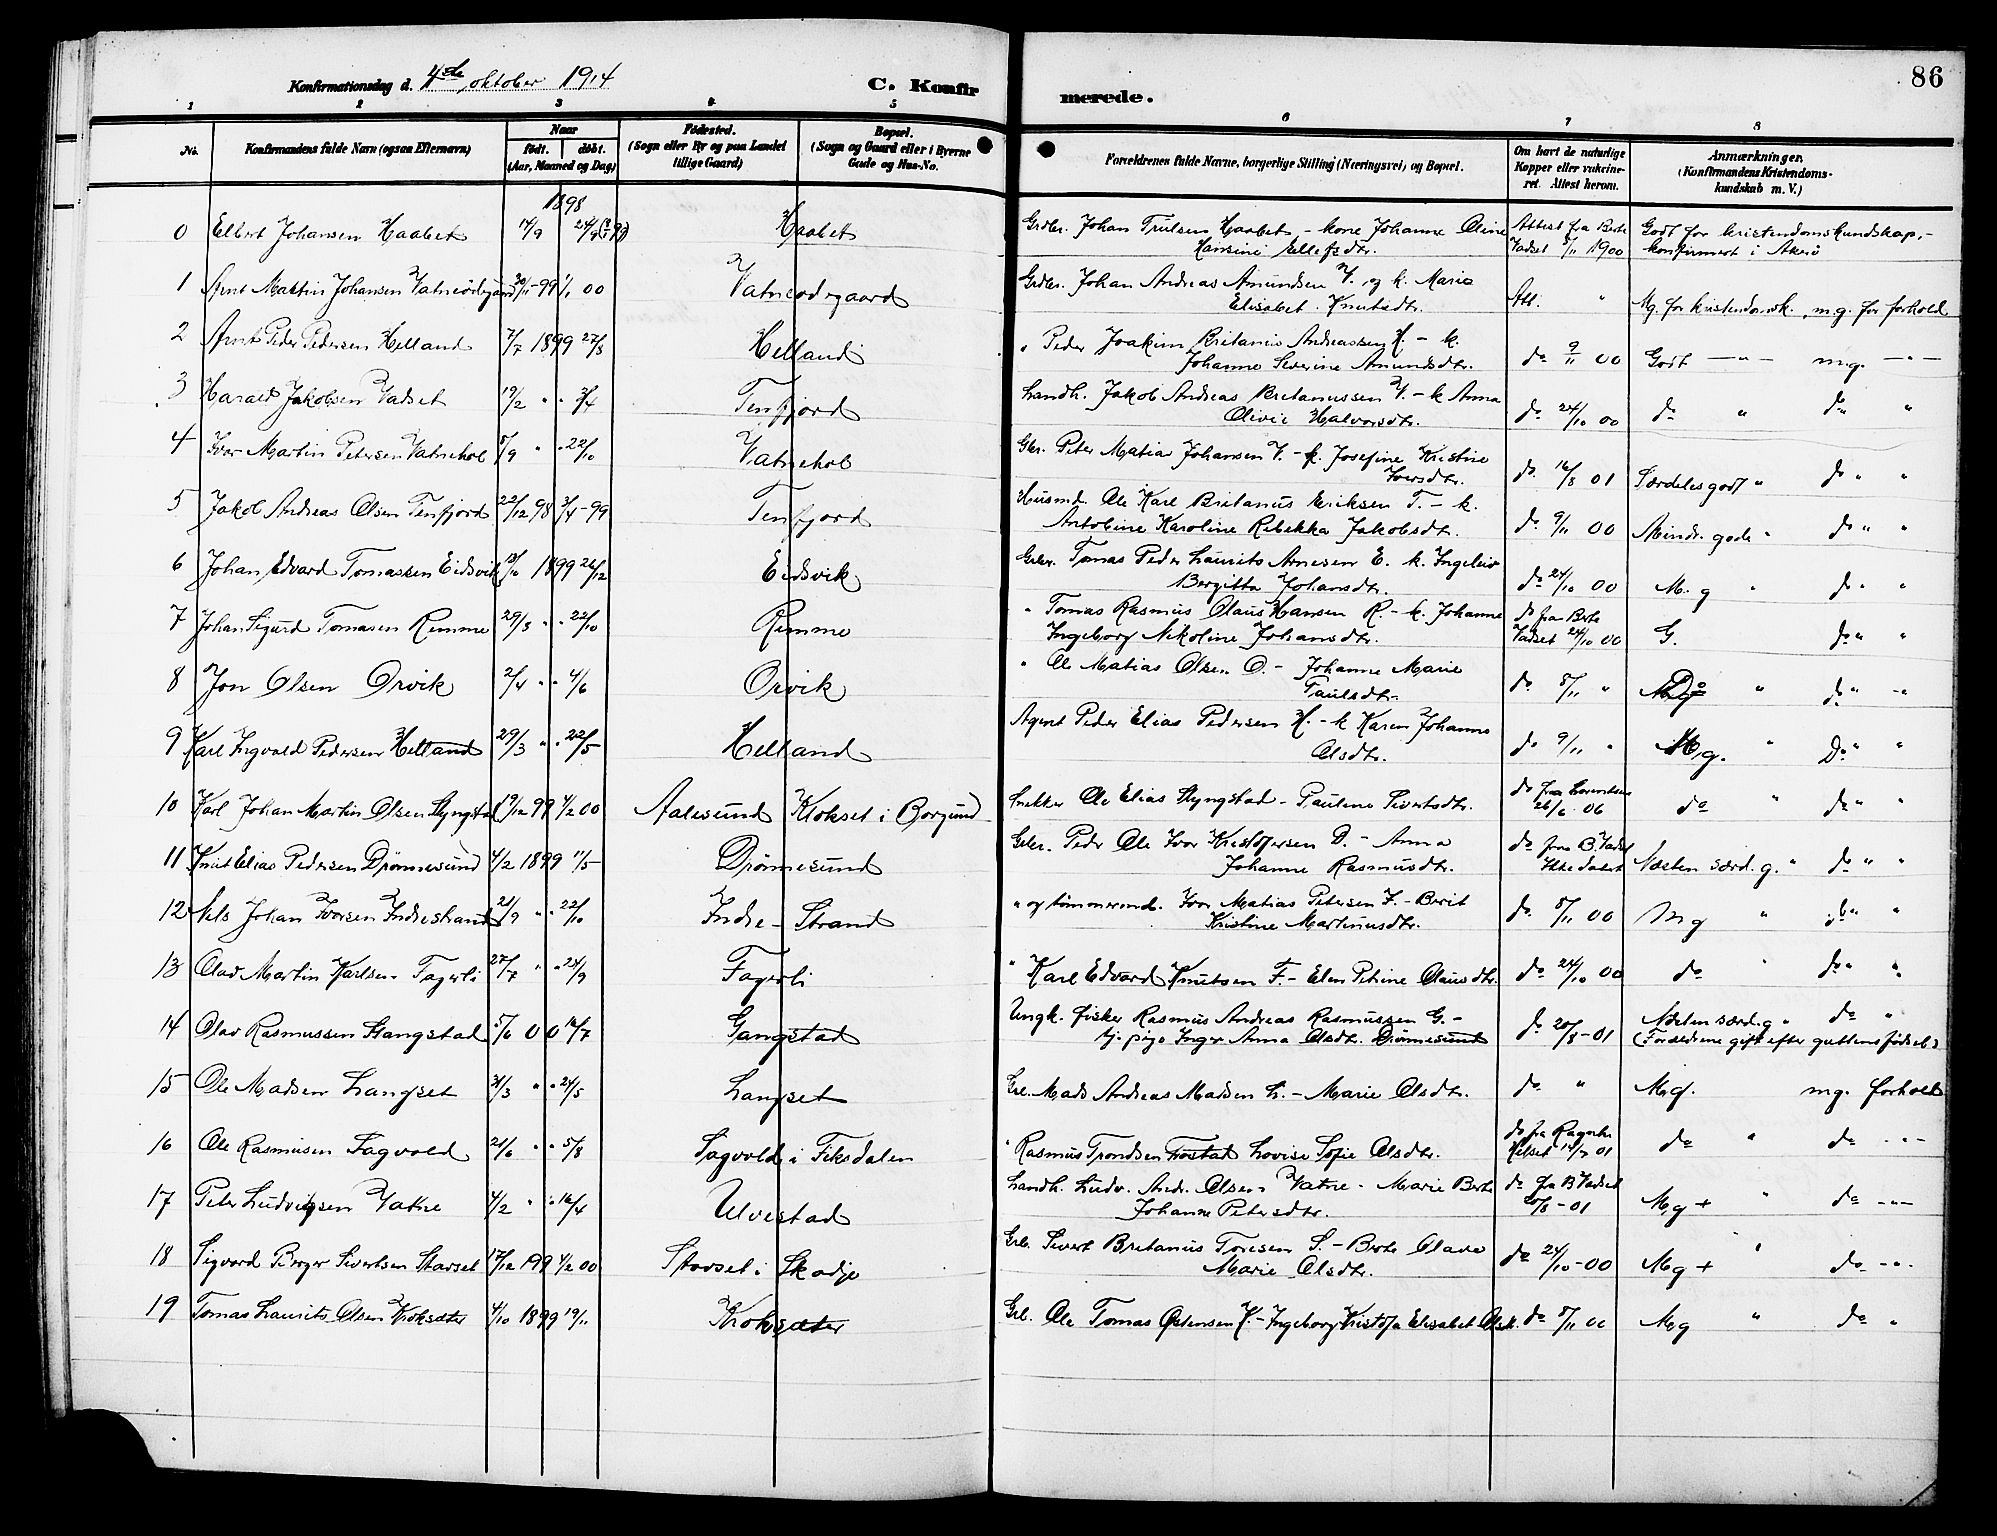 86
Konfirmationsdag d. 4de oktober 1914
C. Konfirmerede.
1 2 3 4 5 6 7 8
No.
Konfirmandens fulde Navn (ogsaa Efternavn)
Naar
født. døbt.
(Aar, Maaned og Dag)
Fødested.
(Sogn eller By og paa Landet tillige Gaard)
Bopæl.
(Sogn og Gaard eller i Byerne Gade og Hus-No.
Forældrenes fulde Navne, borgerlige Stilling (Næringsvei) og Bopæl.
Om havt de naturlige Kopper eller vakcineret. Attest herom.
Anmærkninger.
(Konfirmandens Kristendomskundskab m. V.)
1898
0 Elbert Johansen Haabet 14/9 Haabet Grdbr. Johan Trulsen Haabet - kone Johanne Oline Attest fra Berte Godt for kristendomskundskap,-
Hansine Ellefsdtr. Vadset 5/11 1900 konfirmert i Akerø
1 Arnt Martin Johansen Vatneødegaard 30/11-99 1/1 00 Vatneødegaard Grdbr. Johan Andreas Amundsen V. og k. Marie
Elisabet Knutsdtr. Att. " M.g. for kristendomsk. m.g. for forhold
2 Arnt Peder Pedersen Helland 7/7 1899 27/8 Helland " Peder Joakim Britanus Andreassen H - k.
Johanne Severine Amundsdtr. do 9/11 00 Godt -"- m.g. -"-
3 Harald Jakobsen Vadset 19/2 " " 3/4 Tenfjord Landh. Jakob Andreas Britanussen V. - k Anna
Olivie Halvorsdtr. do 24/10 00 do " do "
4 Ivar Martin Petersen Vatnehol 5/9 " " 22/10 Vatnehol Gbr. Peter Matias Johansen V. - k. Josefine Kristine
Iversdtr. do 16/8 01 Særdeles godt " do " "
5 Jakob Andreas Olsen Tenfjord 22/12 98 3/4-99 Tenfjord Husmd. Ole Karl Britanus Eriksen T. - k.
Antobine Karoline Rebekka Jakobsdt. do 9/11 00 Mindr. gode " do " "
6 Johan Edvard Tomassen Eidsvik 1899 26/12 Eidsvik Grbr. Tomas Peder Laurits Arnesen E. k. Ingeleiv
Bergitta Johansdtr. do 24/10 00 M.g " do " "
7 Johan Sigurd Tomasen Remme 29/8 " " 22/10 Remme " Tomas Rasmus Olaus Hansen R - k. Johanne do fra Berte
Ingeborg Nikoline Johansdtr. Vadset 24/10 00 G. do " "
8 Jon Olsen Orvik 2/4 " " 4/6 Orvik " Ole Matias Olsen O. - Johanne Marie
Paulsdtr. do 5/11 " Do " do " "
9 Karl Ingvald Pedersen Helland 29/3 " " 22/5 Helland Agent Peder Elias Pedersen H. - k Karen Johanne
Olsdtr. do 9/11 " M.g. " Do " "
10 Karl Johan Martin Olsen Slyngstad 19/12 99 4/2 00 Aalesund Klokset i Borgund Snekker Ole Elias Slyngstad - Pauline Sivertsdtr. do fra Lorentsen
26/6 06 do " do " "
11 Knut Elias Pedersen Drønnesund 4/2 1899 11/5 Drønnesund Grbr. Peder Ole Ivar Kristofersen D. - Anna do fra B. Vadset
Johanne Rasmusdtr. Ikke datert Næsten særd. g. " do " "
12 Nils Johan Iversen Indrestrand 21/9 " " 22/10 Indre-Strand " og tømmermd. Iver Matias Petersen I. - Berit
Kristine Martinusdtr. do 5/11 00 Mg " do " "
13 Olav Martin Karlsen Fagerli 27/7 " " 24/9 Fagerli " Karl Edvard Knutsen F. - Elen Petrine Olausdtr. do 24/10 00 do " do " "
14 Olav Rasmussen Gangstad 5/6 00 16/7 Gangstad Ungk. fisker Rasmus Andreas Rasmussen G. - Næsten særd. g " do "
tj. pige Inger Anna Olsdtr. Drønnesund do 20/8-01 (Forældrene gift efter guttens fødsel)
15 Ole Madsen Langset 31/3 " " 21/5 Langset Grl. Mads Andreas Madsen L. - Marie Olsdtr. do " M.g. mg. forhold
16 Ole Rasmusen Sagvold 21/6 " " 5/8 Sagvold i Fiksdalen " Rasmus Trondsen Frostad Lovise Sofie Olsdtr. do fra Ragnhi
Kelset 14/7 01 do " do -"-
17 Peter Ludvigsen Vatne 4/2 " " 16/4 Ulvestad Landh. Ludv. Andr. Olsen Vatne - Marie Berte do fra B Vadset
Johanne Petersdtr. 20/8-01 M.g + " do -"-
18 Sigvard Birger Sivertsen Stavset 17/12 199 4/2 00 Stavset i Skodje Grb. Sivert Britanus Toresen S. - Berte Olave
Marie Olsdtr. do 24/10-00 M.g + " do -"-
19 Tomas Laurits Olsen Kroksæter 4/10 1899 19/11 Kroksæter Grb. Ole Tomas Østensen K. - Ingeborg Kristofa Elisabet Olsd. do 5/11 00 M.g " do "